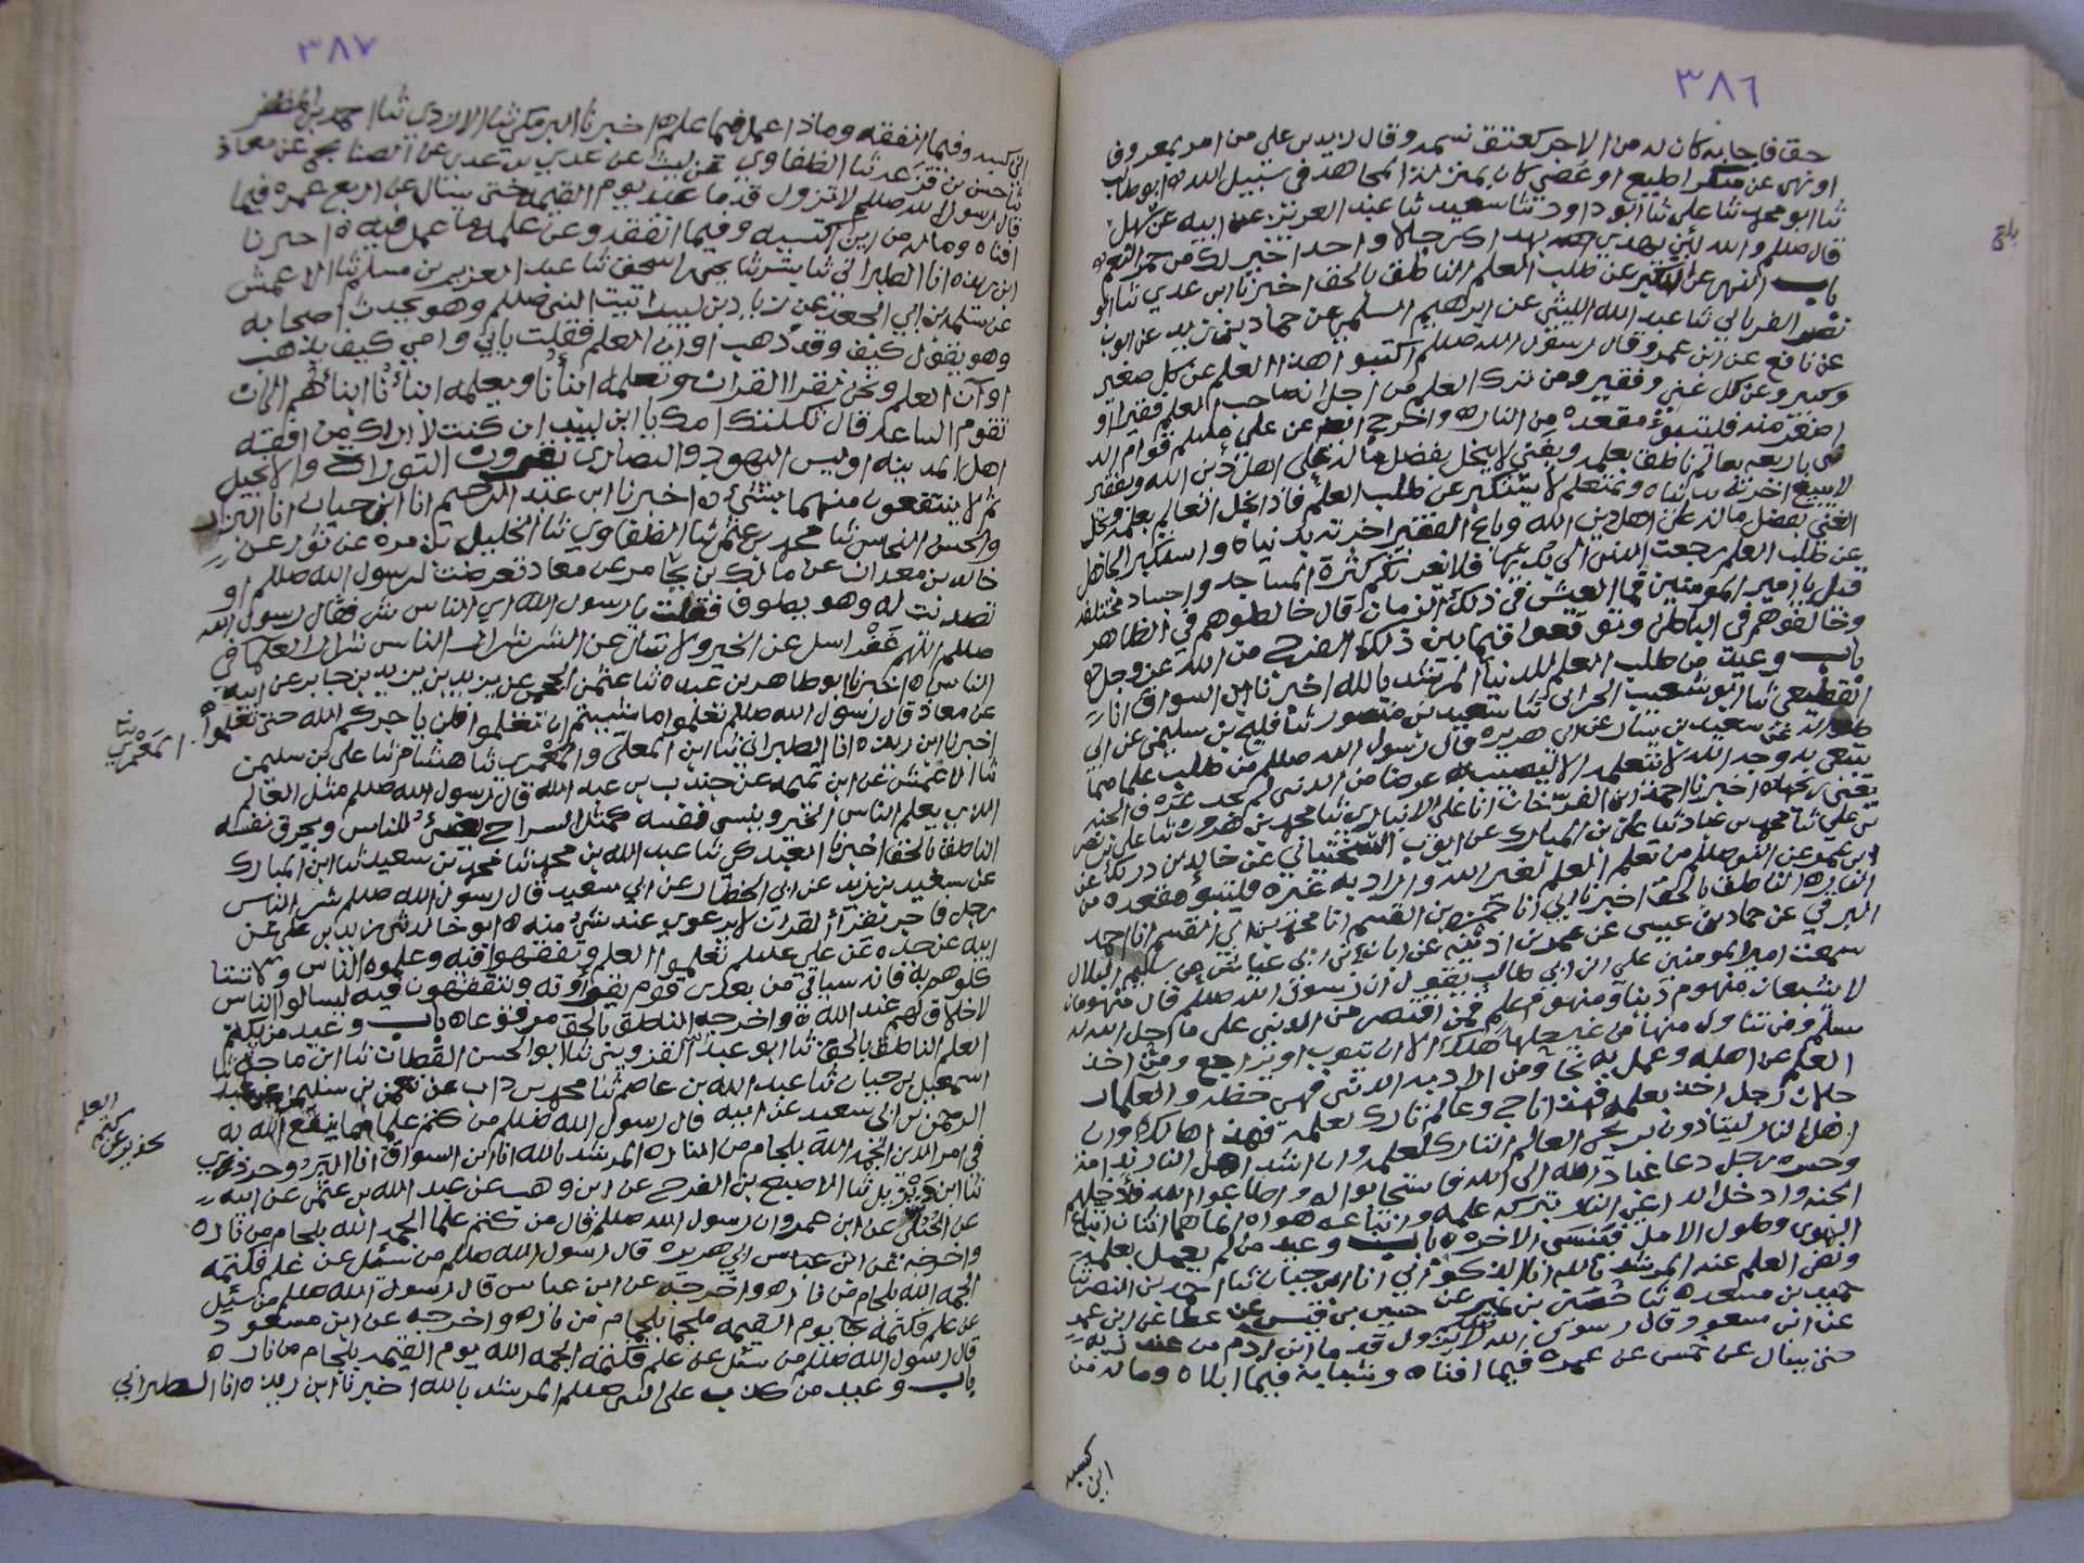 ٣٨٦
حق فاجابه كان له من الاجر كعتق نسمه وقال لا يدس علي من امر بمعروف
او نهى عن منكر اطيع او عصي كان بمنزلة المجاهد في سبيل الله ه ابو طالب
ثنا ابو محمد ثنا علي ثنا ابو داود ثنا سعيد ثنا عبد العزيز عن ابيه عن سهل
قال صللم والله لئن يهدي الله بهداك رجلا واحدا خير لك من حمر النعم ه
باب النهي عن التكبر عن طلب العلم الناطق بالحق اخبرنا ابن عدي ثنا ابو
نصر الفريابي ثنا عبد الله الليثي عن ابرهيم السلمي عن حماد بن زيد عن ايوب
عن نافع عن ابن عمر وقال رسول الله صللم اكتبوا هذا العلم عن كل صغير
وكبير وعن كل غني وفقير ومن ترك العلم من اجل ان صاحب العلم فقير او
اصغر منه فليتبوؤ مقعده من النار ه واخرج عن علي عليلم قوام الد
نى باربعه بعالم ناطق بعلمه وبغني لا يبخل بفضل ماله على اهل دين الله وبفقير
لا يبيع اخرته بدنياه وبمتعلم لا يتكبر عن طلب العلم فاذا بخل العالم بعلمه وبخل
الغني بفضل ماله على اهل دين الله وباع الفقير اخرته بدنياه واستكبر الجاهل
عن طلب العلم رجعت الدنيا الى فلا تغرنكم كثرة المساجد واجساد مختلفه
قيل يا امير المومنين فما العيش في ذلك الزمان قال خالطوهم في الظاهر
وخالفوهم في الباطن وتوقعوا فيما بين ذلك الفرج من الله عز وجل ه
باب وعيد من طلب العلم للدنيا المرشد بالله اخبرنا ابن السواق انا
القطيعي ثنا ابو شعيب الحراني ثنا سعيد بن منصور ثنا فليح بن سليمن عن ابي
طواله عن سعيد بن يسار عن ابي هريره قال رسول الله صللم من طلب علما مما
يبتغى به وجه الله لا يتعلمه الا ليصيب به عوضا من الدنيا لم يجد عرف الجنه
يعني ريحها ه اخبرنا احمد ابن الفرخان انا علي الانباري ثنا محمد بن هرون ثنا علي بن نصر
بن علي ثنا محمد بن عباد ثنا علي بن المبارك عن ايوب السختياني عن خالد بن دريك عن
ابن عمر عن النبي صللم من تعلم العلم لغير الله واراد به غيره فليتبوؤ مقعده من
النار ه الناطق بالحق اخبرنا ابي انا حمزه بن القسم انا محمد بن ابي القسم انا احمد
البرقي عن حماد بن عيسى عن عمر بن اذينه عن ابان ابن ابي عياش عن سليم الهلالي
سمعت امير المومنين علي ابن ابي طالب يقول ان رسول الله صللم قال منهومان
لا يشبعان منهوم دنيا ومنهوم علم فمن اقتصر من الدنيا على ما احل الله له
سلم ومن تناول منها من غير حلها هلك الا ان يتوب او يراجع ومن اخذ
العلم عن اهله وعمل به نجا ومن اراد به الدنيا فهي حظه والعلما
رجلان رجل اخذ بعلمه فهذا ناجي وعالم تارك بعلمه فهذا هالك وان
اهل النار ليتاذون بريح العالم التارك لعلمه وان اشد اهل النار ندامه
وحسره رجل دعا عبادا لله الى الله فاستجابوا له واطاعوا الله فادخلهم
الجنه وادخل الداعي النار بتركه علمه واتباعه هواه انما هما اثنان اتباع
الهوى وطول الامل فينسي الاخره ه باب وعيد من لم يعمل بعلمه
ونقض العلم عند المرشد بالله انا الذكواني انا ابن حبان ثنا احمد بن النصر ثنا
حميد بن مسعده ثنا حصين بن نمير عن حسين بن قيس عن عطا عن ابن عمر
عن ابن مسعود قال رسول الله لا يزول قدما ابن ادم من عند ربه
حتى يسال عن خمس عن عمره فيما افناه وشبابه فيما ابلاه وماله من
اين كسبه
٣٨٧
اين كسبه وفيما انفقه وماذا عمل فيما علم ه اخبرنا البرمكي ثنا الازدي ثنا احمد بن المظفر
ثنا حسن بن قزعه ثنا الطفاوي عن ليث عن عدي بن عدي عن الصنابحي عن معاذ
قال رسول الله صللم لا تزول قدما عبد يوم القيمه حتى يسال عن اربع عمره فيما
افناه وماله من اين اكتسبه وفيما انفقه وعن علمه ما عمل فيه ه اخبرنا
ابن ريذه انا الطبراني ثنا بشر ثنا يحيى بن اسحق ثنا عبد العزيز بن مسلم ثنا الاعمش
عن سلم بن ابي الجعد عن زياد بن لبيد اتيت النبي صللم وهو يحدث اصحابه
وهو يقول كيف وقد ذهب اوان العلم فقلت بابي وامي كيف يذهب
اوان العلم ونحن نقرا القران وتعلمه ابناؤنا ويعلمه ابناؤنا ابناءهم الى ان
تقوم الساعه قال ثكلتك امك يا ابن لبيد ان كنت لاراك من افقه
اهل المدينه اوليس اليهود والنصارى يقرون التوراه والانجيل
ثم لا ينتفعون منهما بشي ه اخبرنا ابن عبد الرحيم انا ابن حبان انا البزار
والحسن النحاس ثنا محمد بن عثمن ثنا الطفاوي ثنا الخليل بن مره عن ثور عن
خالد بن معدان عن مالك بن يخامر عن معاذ تعرضت لرسول الله صللم او
تصديت له وهو يطوف فقلت يا رسول الله اي الناس شر فقال رسول الله
صللم اللهم غفرا سل عن الخير ولا تسال عن الشر شرار الناس شرار العلما في
الناس ه اخبرنا ابو طاهر بن عبده ثنا عثمن الجمحي عن يزيد بن يزيد بن جابر عن ابيه
عن معاذ قال رسول الله صللم تعلموا ما شيتم ان تعلموا فلن ياجركم الله حتى تعلموا ه
اخبرنا ابن ريذه انا الطبراني ثنا ابن المعلى والمعمري ثنا هشام ثنا علي بن سليمن
ثنا الاعمش عن ابن تميمه عن جندب بن عبد الله قال رسول الله صللم مثل العالم
الذي يعلم الناس الخير وينسى نفسه كمثل السراج يضيء للناس ويحرق نفسه
الناطق بالحق اخبرنا العبدكي ثنا عبد الله بن محمد ثنا محمد بن سعيد ثنا ابن المبارك
عن سعيد بن يزيد عن ابي الخطاب عن ابي سعيد قال رسول الله صللم شر الناس
رجل فاجر يقرا القران لا يرعوي عند شيء منه ه ابو خالد ثني زيد بن علي عن
ابيه عن جده عن علي عليلم تعلموا العلم وتفقهوا فيه وعلموه الناس ولا تستا
كلوهم به فانه سياتي من بعدي قوم يقراونه ويتفقهون فيه ليسالوا الناس
لا خلاق لهم عند الله ه واخرجه الناطق بالحق مرفوعا ه باب وعيد من يكتم
العلم الناطق بالحق ثنا ابو عبد الله القزويني ثنا ابو الحسن القطان ثنا ابن ماجه ثنا
اسمعيل بن حبان ثنا عبد الله بن عاصم ثنا محمد بن داب عن صفوان بن سليم عن عبد
الرحمن بن ابي سعيد عن ابيه قال رسول الله صللم من كتم علما مما ينفع الله به
في امر الدين الجمه الله بلجام من النار ه المرشد بالله انا ابن السواق انا
ثنا ابن ثنا الاصبغ بن الفرج عن ابن وهب عن عبد الله بن عياش عن ابيه
عن الحبلي عن ابن عمرو ان رسول الله صللم قال من كتم علما الجمه الله بلجام من نار ه
واخرجه عن ابن عباس ابي هريره قال رسول الله صللم من سئل عن علم فكتمه
الجمه الله بلجام من نار ه واخرجه عن ابن عباس قال رسول الله صللم من سئل
عن علم فكتمه جا يوم القيمه ملجما بلجام من نار ه واخرجه عن ابن مسعود
قال رسول الله صللم من سئل عن علم فكتمه الجمه الله يوم القيمه بلجام من نار ه
باب وعيد من كذب على النبي صللم المرشد بالله اخبرنا ابن ريذه انا الطبراني
المعمري
تحذير عن كتم
العلم